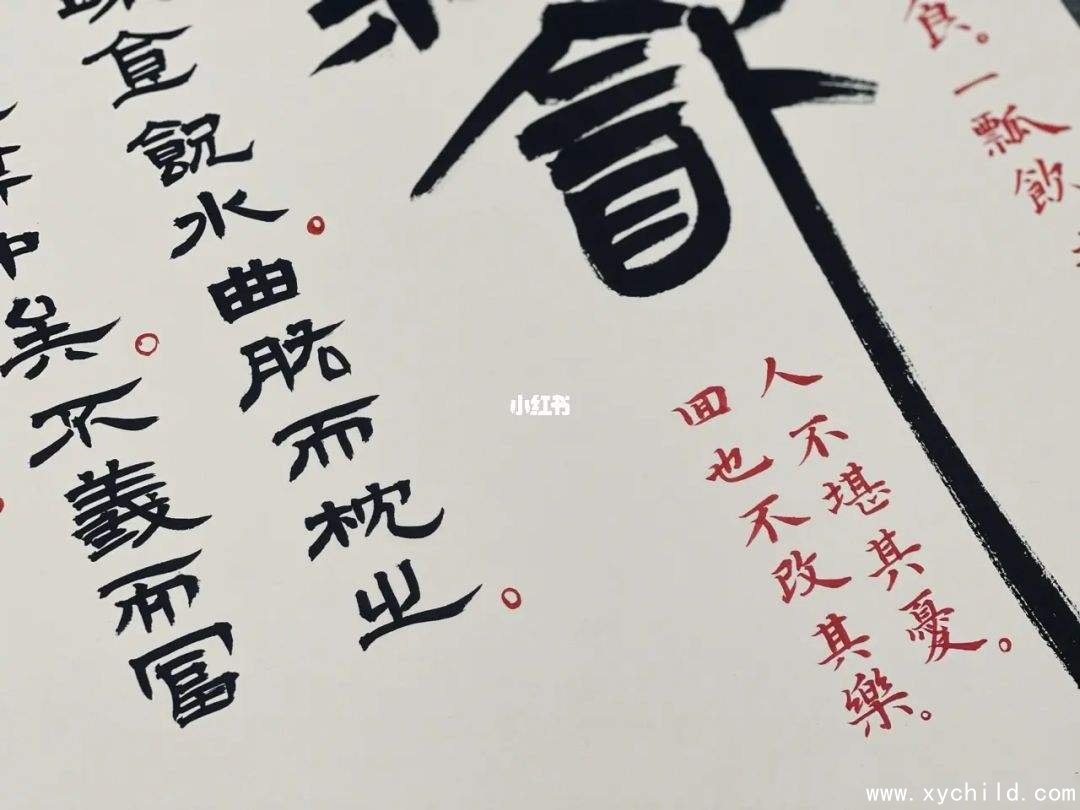 食。一瓢飲
人不堪其憂。
回也不改其樂。
食飲水。曲肱而枕之。
中矣。不義而富
小红书
www.xychild.com